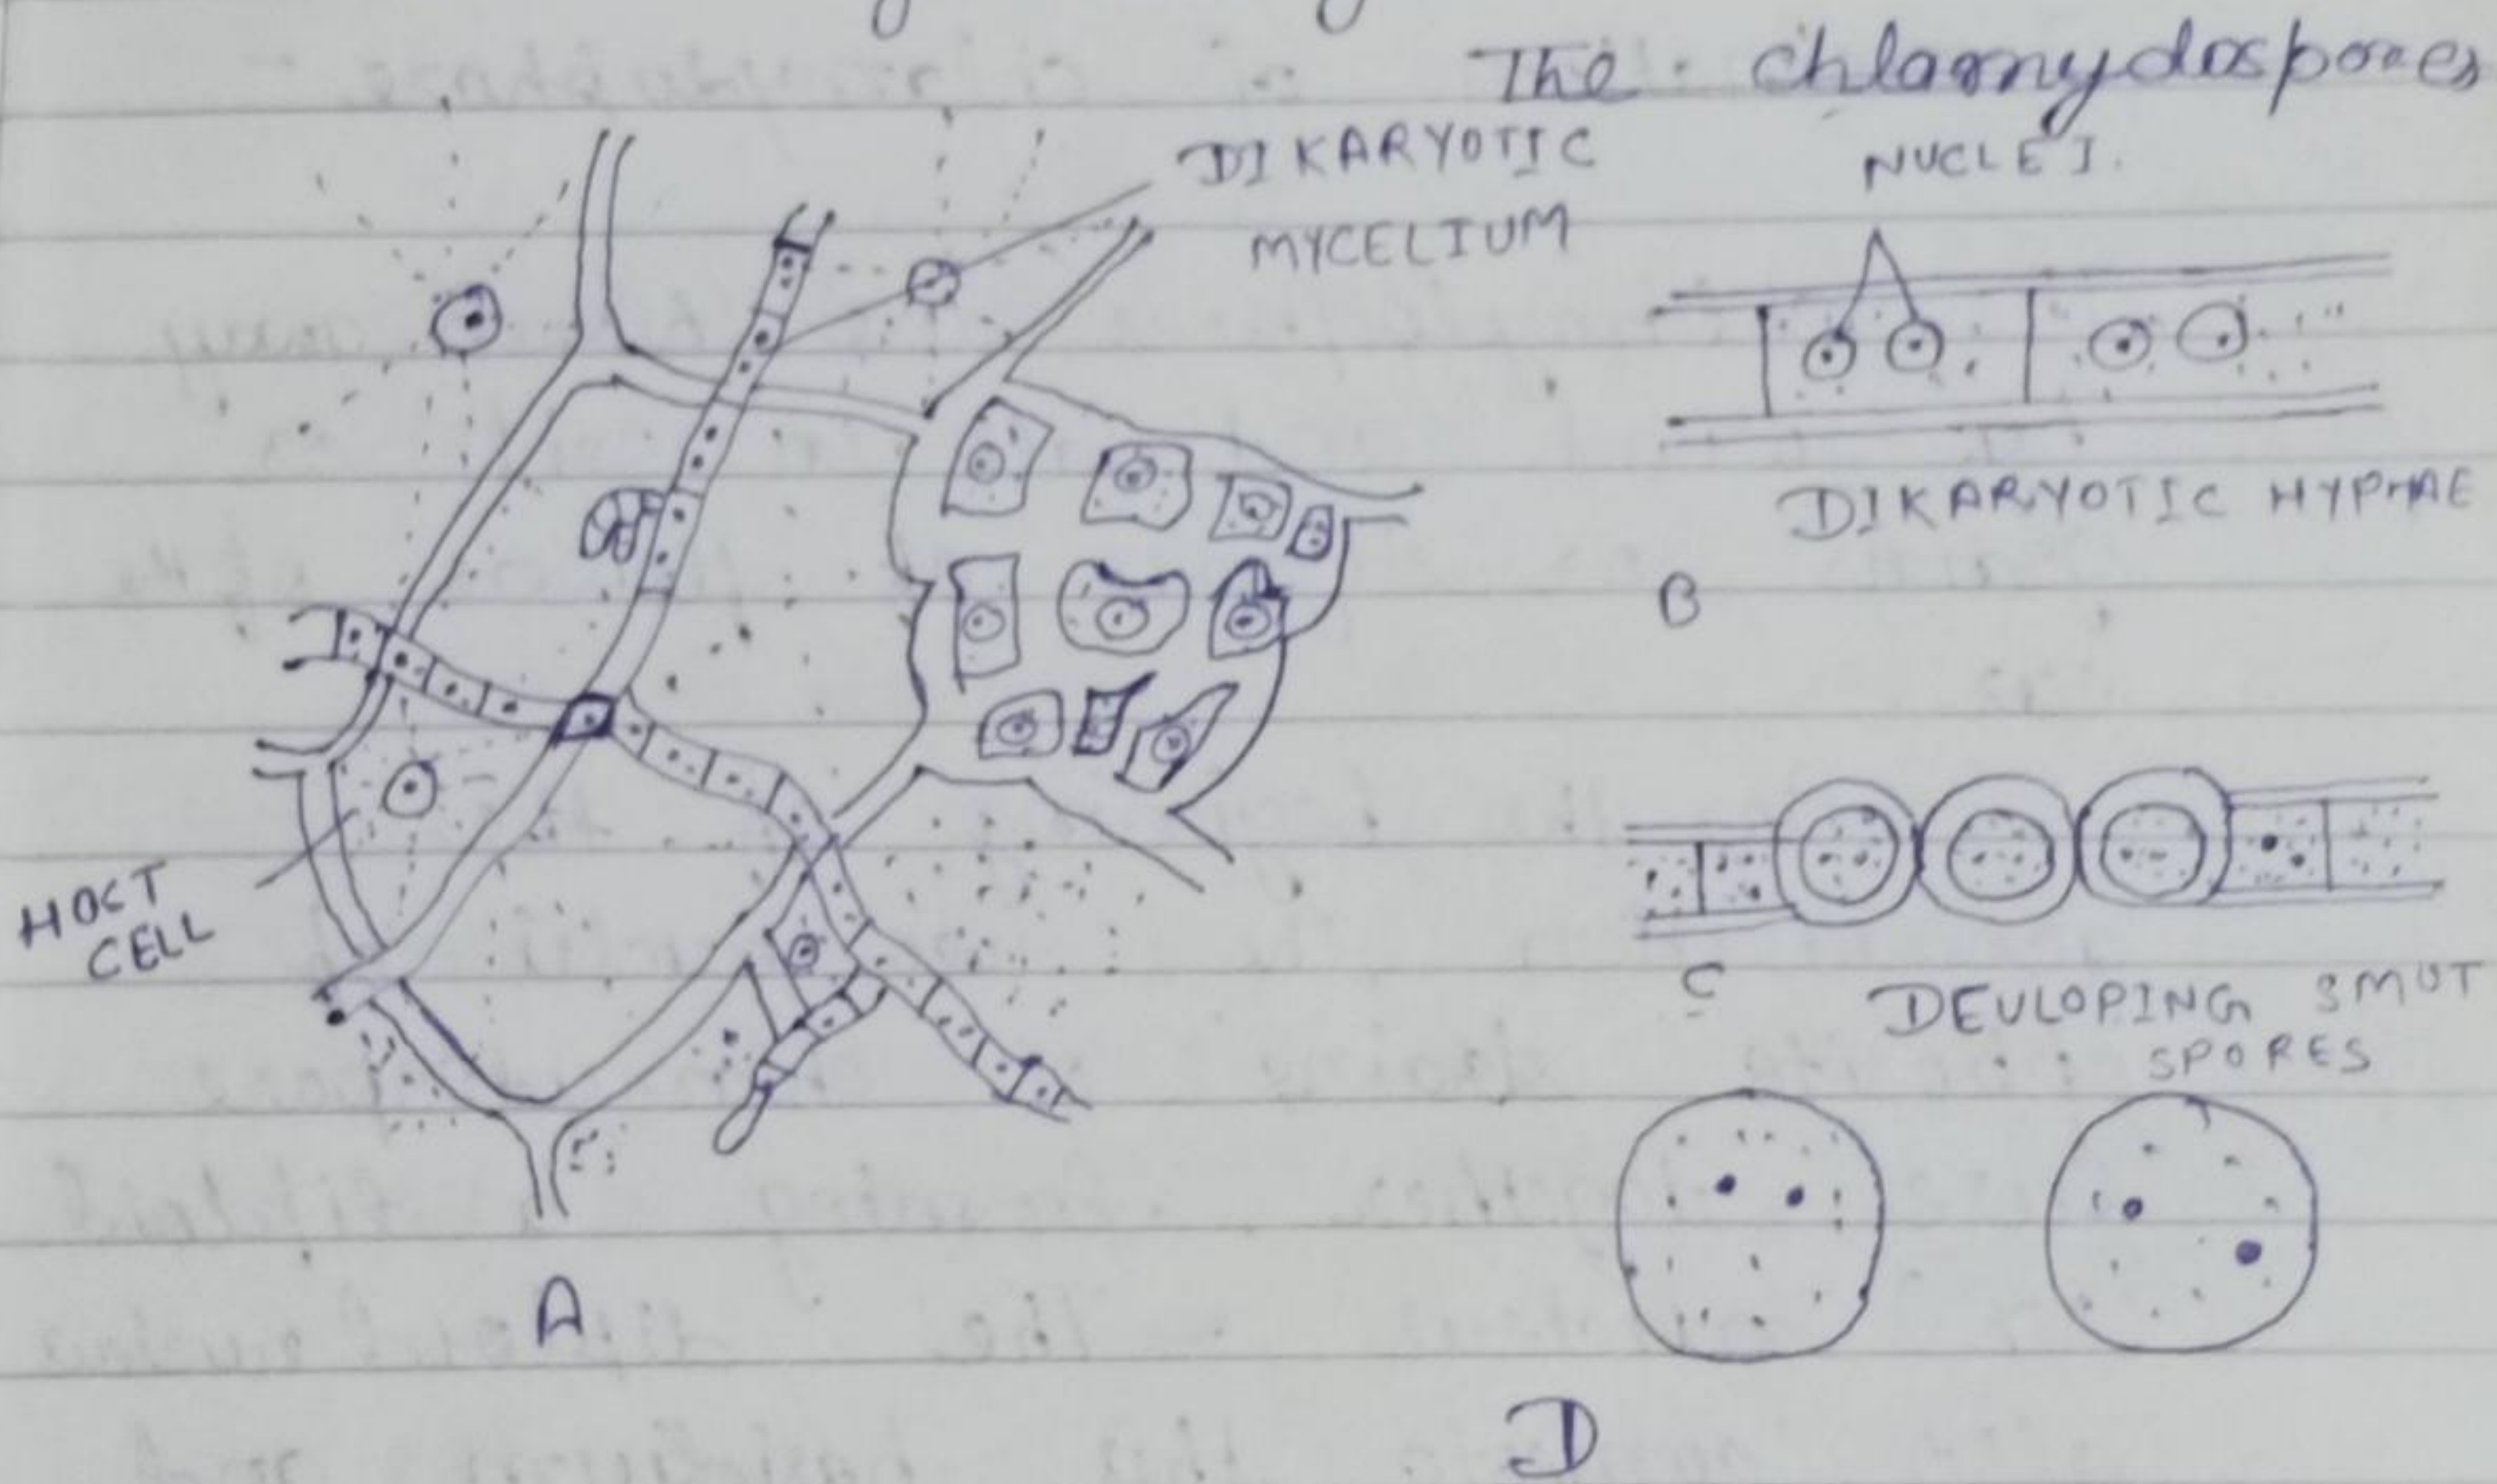 The chlamydospores
DIKARYOTIC
MYCELIUM
NUCLEI.
DIKARYOTIC HYPHAE
B
HOST
CELL
C
DEVLOPING SMUT
SPORES
A
D